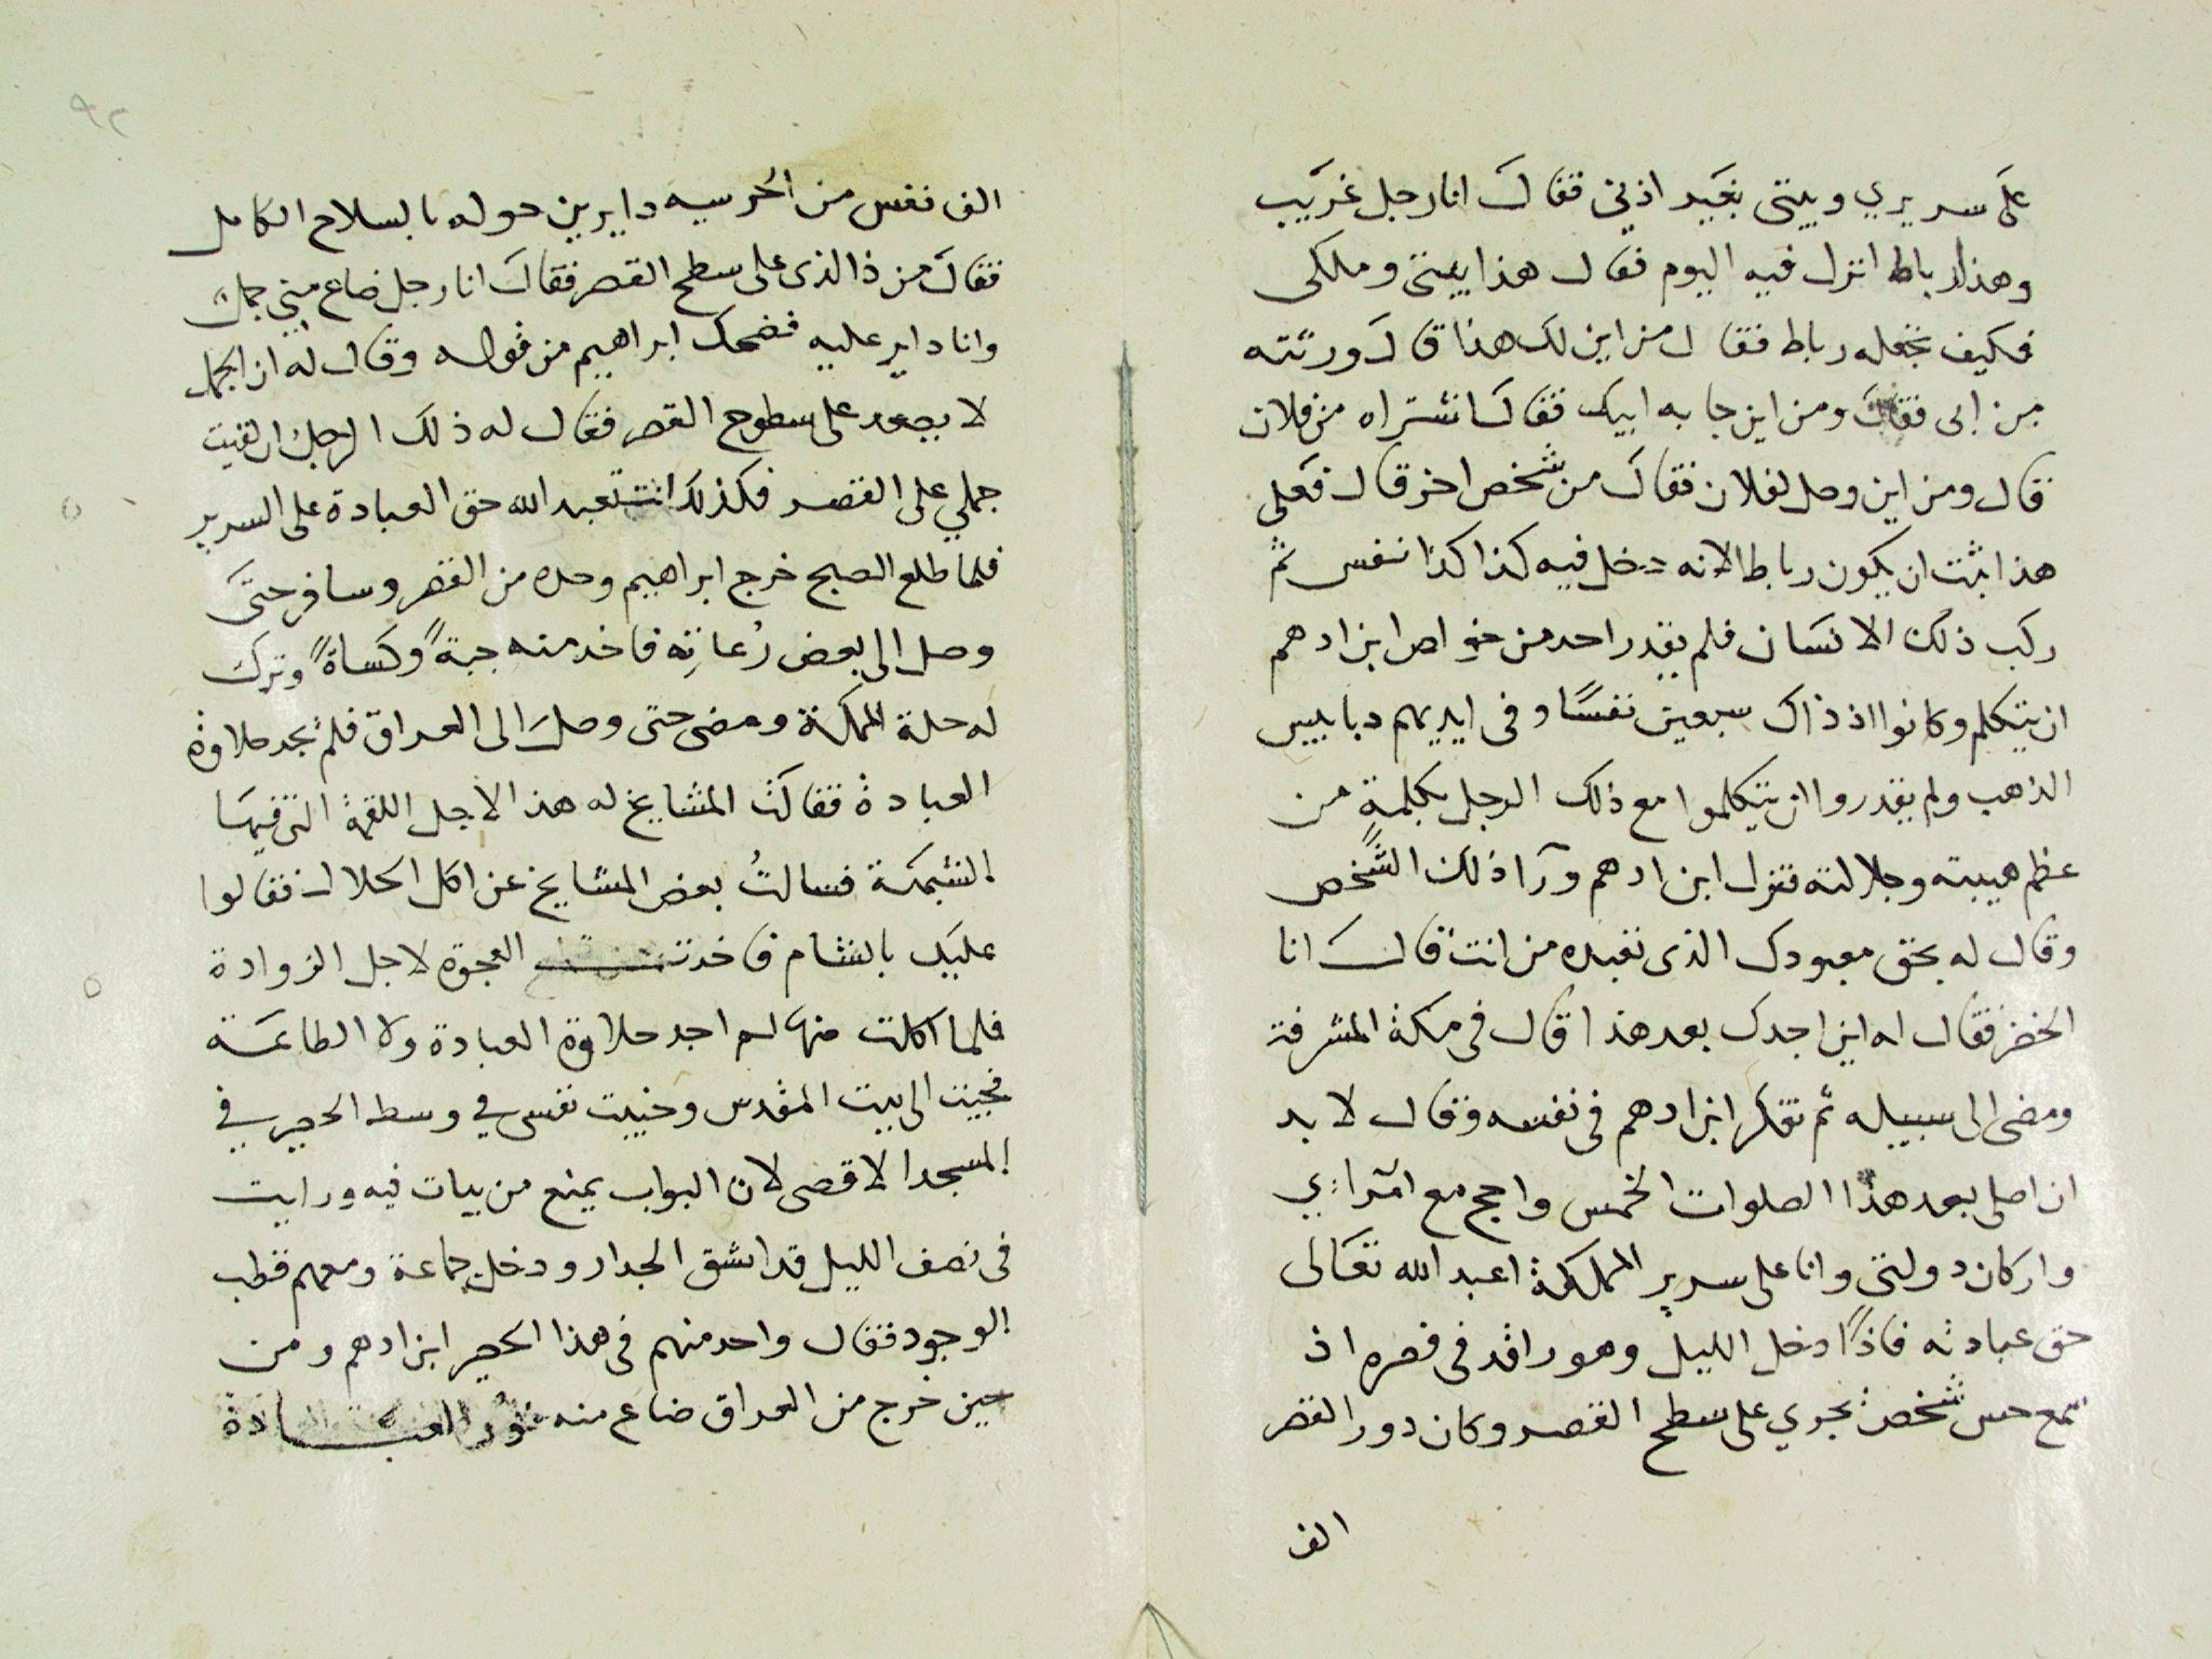 على سريري وبيتى بغير اذني فقال انا رجل غريب
وهذا رباط انزل فيه اليوم فقال هذا بيتى وملكى
فكيف تجعله رباط فقال من اين لك هذا قال ورثته
من ابى فقال ومن اين جا به ابيك فقال اشتراه من فلان
قال ومن اين وصل لفلان فقال من شخص اخر قال فعلى
هذا ثبت ان يكون رباط لانه دخل فيه كذا كذا نفس ثم
ركب ذلك الانسان فلم يقدر احد من خواص ابن ادهم
ان يتكلم وكانوا اذ ذاك سبعين نفسًا وفى ايديهم دبابيس
الذهب ولم يقدروا ان يتكلموا مع ذلك الرجل بكلمةٍ من
عظم هيبته وجلالته فنزل ابن ادهم ورآ ذلك الشخص
وقال له بحق معبودك الذى تعبده من انت قال انا
الخضر فقال له اين اجدك بعد هذا قال فى مكة المشرفة
ومضى الى سبيله ثم تفكر ابن ادهم فى نفسه وقال لا بد
ان اصلى بعد هذا الصلوات الخمس واحج مع امرآءي
واركان دولتى وانا على سرير المملكة اعبد الله تعالى
حق عبادته فاذًا دخل الليل وهو راقد فى قصره اذ
سمع حس شخص يجري على سطح القصر وكان دور القصر
الف
٩٢
الف نفس من الحرسيه دايرين حوله بالسلاح الكامل
فقال من ذا الذى على سطح القصر فقال انا رجل ضاع منى جمل
وانا داير عليه فضحك ابراهيم من قوله وقال له ان الجمل
لا يصعد على سطوح القصر فقال له ذلك الرجل ان لقيت
جملي على القصر فكذلك انت تعبد الله حق العبادة على السرير
فلما طلع الصبح خرج ابراهيم وحده من القصر وسافر حتى
وصل الى بعض رُعاتِه فاخد منه جبةً وكساةً وترك
له حلة المملكة ومضى حتى وصل الى العراق فلم يجد حلاوة
العبادة فقالت المشايخ له هذا لاجل اللقمة التى فيها
الشبهة فسالتُ بعض المشايخ عن اكل الحلال فقالوا
عليك بالشام فاخدت العجوة لاجل الزوادة
فلما اكلت منها لم اجد حلاوة العبادة ولا الطاعة
فجيت الى بيت المقدس وخبيت نفسى في وسط الحصير في
المسجد الاقصى لان البواب يمنع من يبات فيه ورايت
فى نصف الليل قد انشق الجدار ودخل جماعة ومعهم قطب
الوجود فقال واحد منهم فى هذا الحصير ابن ادهم ومن
حين خرج من العراق ضاع منه نور العبادة